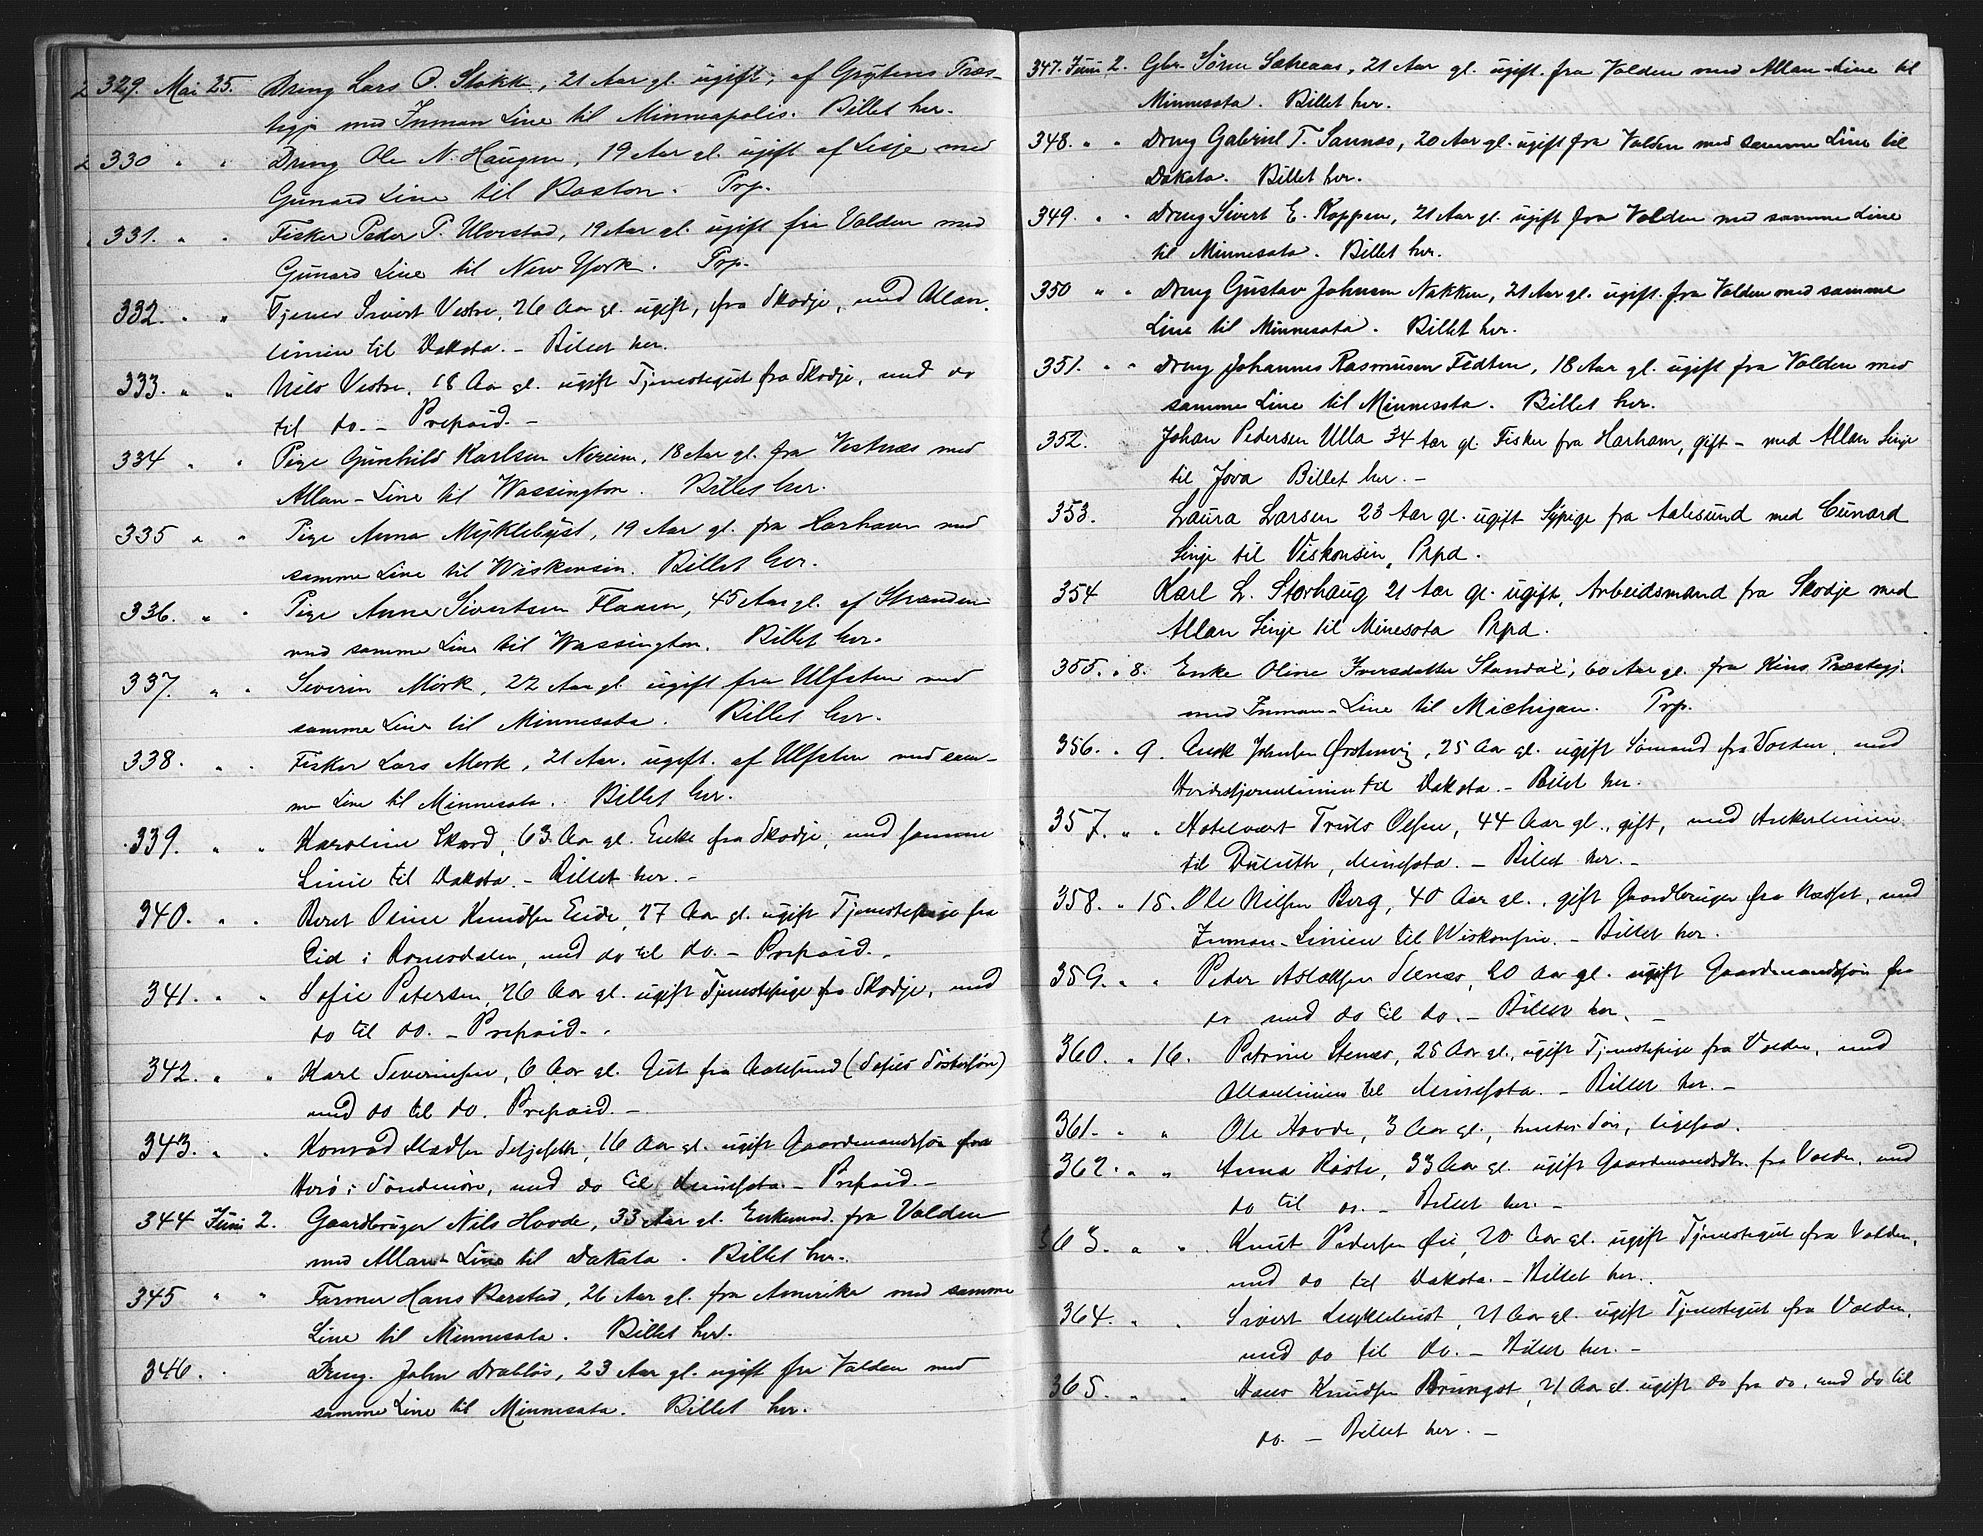 329. Mai 25. Dreng Lars O. Stokke, 21 Aar gl. ugift, af Grytens Præs-
tegj. med Inman Line til Minneapolis. Billet her.
330 " " Dreng Ole N. Haugen, 19 Aar gl. ugift af Lesje med
Gunard Line til Boston. Prp.
331. " " Fisker Peder P. Ulvestad, 19 Aar gl. ugift fra Volden med
Gunard Line til New York. Prp.
332. " " Tjener Sivert Vestre, 26 Aar gl. ugift, fra Skodje, med Allan-
linien til Dakota. - Billet her.
333. " " Nils Vestre, 18 Aar gl. ugift Tjenestegut fra Skodje, med do
til do. - Prepaid. -
334 " " Pige Gunhild Karlsen Nereim, 18 Aar gl. fra Vestnæs med
Allan-Line til Wassington. Billet her.
335 " " Pige Anna Myklebust, 19 Aar gl. fra Harham med
samme Line til Wiskonsin. Billet her.
336. " " Pige Anne Sivertsen Flaaen, 45 Aar gl. af Stranden
med samme Line til Wassington. Billet her.
337. " " Severin Mork, 22 Aar gl. ugift fra Ulfsten med
samme Line til Minnesota. Billet her.
338. " " Fisker Lars Mork, 21 Aar. ugift. af Ulfsten med sam-
me Line til Minnesota. Billet her.
339. " " Karoline Skard, 63 Aar gl. Enke fra Skodje, med samme
Linie til Dakota. - Billet her. -
340. " " Beret Oline Knudsen Eide, 27 Aar gl. ugift Tjenestepige fra
Eid i Romsdalen, med do til do. - Prepaid. -
341. " " Sofie Petersen, 26 Aar gl. ugift Tjenestepige fra Skodje, med
do til do. - Prepaid. -
342. " " Karl Severinsen, 6 Aar gl. Gut fra Aalesund (Sofies Søstersøn)
med do til do. Prepaid. -
343. " " Konrad Madsen 16 Aar gl. ugift Gaardmandssøn fra
Herø i Søndmøre, med do til Minesota - Prepaid. -
344 Juni 2. Gaardbruger Nils Hovde, 33 Aar gl. Enkemand. fra Volden
med Allan-Line til Dakota. Billet her.
345 " " Farmer Hans Barstad, 26 Aar gl. fra Amerika med samme
Line til Minnesota. Billet her.
346. " Dreng. John Drabløs, 23 Aar gl. ugift fra Volden med
samme Line til Minnesota. Billet her.
347. Juni 2. Gbr. Søren Aar gl. ugift. fra Volden med Allan-Line til
Minnesota. Billet her.
348. " " Dreng Gabriel T. Sannæs, 20 Aar gl. ugift fra Volden med samme Line til
Dakota. Billet her.
349. " " Dreng Sivert E. Koppen, 21 Aar gl. ugift fra Volden med samme Line
til Minnesota. Billet her.
350 " " Dreng Gustav Johnsen Nakken, 21 Aar gl. ugift. fra Volden med samme
Line til Minnesota. Billet her.
351. " " Dreng Johannes Rasmusen Fedten, 18 Aar gl. ugift fra Volden med
samme Line til Minnesota. Billet her.
352. Johan Pedersen Ulla 34 Aar gl. Fisker fra Harham, gift - med Allan Linje
til Jova Billet her. -
353. Laura Larsen 23 Aar gl. ugift Sypige fra Aalesund med Cunard
Linje til Viskonsin, Prpd.
354 Karl L. Storhaug 21 Aar gl. ugift, Arbeidsmand fra Skodje med
Allan Linje til Minesota Prpd.
355. " 8. Enke Oline Iversdatter Standal, 60 Aar gl. fra Hins Præstegj.
med Inman-Line til Michigan. Prp.
356. " 9. Ørstenvig, 25 Aar gl. ugift Sømand fra Volden, med
Hvidestjernelinien til Dakota. - Billet her.
357. " " Hotelvært Truls Olsen, 44 Aar gl., gift, med Ankerlinien
til Duluth, Minesota. - Billet her. -
358. " 15. Ole Nilsen Berg, 40 Aar gl., gift Gaardbruger fra Nædset, med
Inman-Linien til Wiskonsin. - Billet her.
359. " " Peder Aslaksen Stenes, 20 Aar gl. ugift Gaardmandssøn fra
do med do til do. - Billet her. -
360. " 16. Petrine Stenes, 25 Aar gl., ugift Tjenestepige fra Volden, med
Allanlinien til Minesota. - Billet her. -
361. " " Ole Hovde, 3 Aar gl., Søn, ligesaa.
362. " " Anna Røste, 33 Aar gl. ugift Gaardmandsdtr. fra Volden, med
do til do. - Billet her. -
363. " " Knut Pedersen Øie, 20 Aar gl. ugift Tjenestegut fra Volden,
med do til Dakota. - Billet her.
364. " " Sivert Myklebust, 21 Aar gl. ugift Tjenestegut fra Volden,
med do til do. - Billet her. -
365. " " Hans Knudsen Brungot, 21 Aar gl. ugift do fra do, med do til
do. - Billet her. -